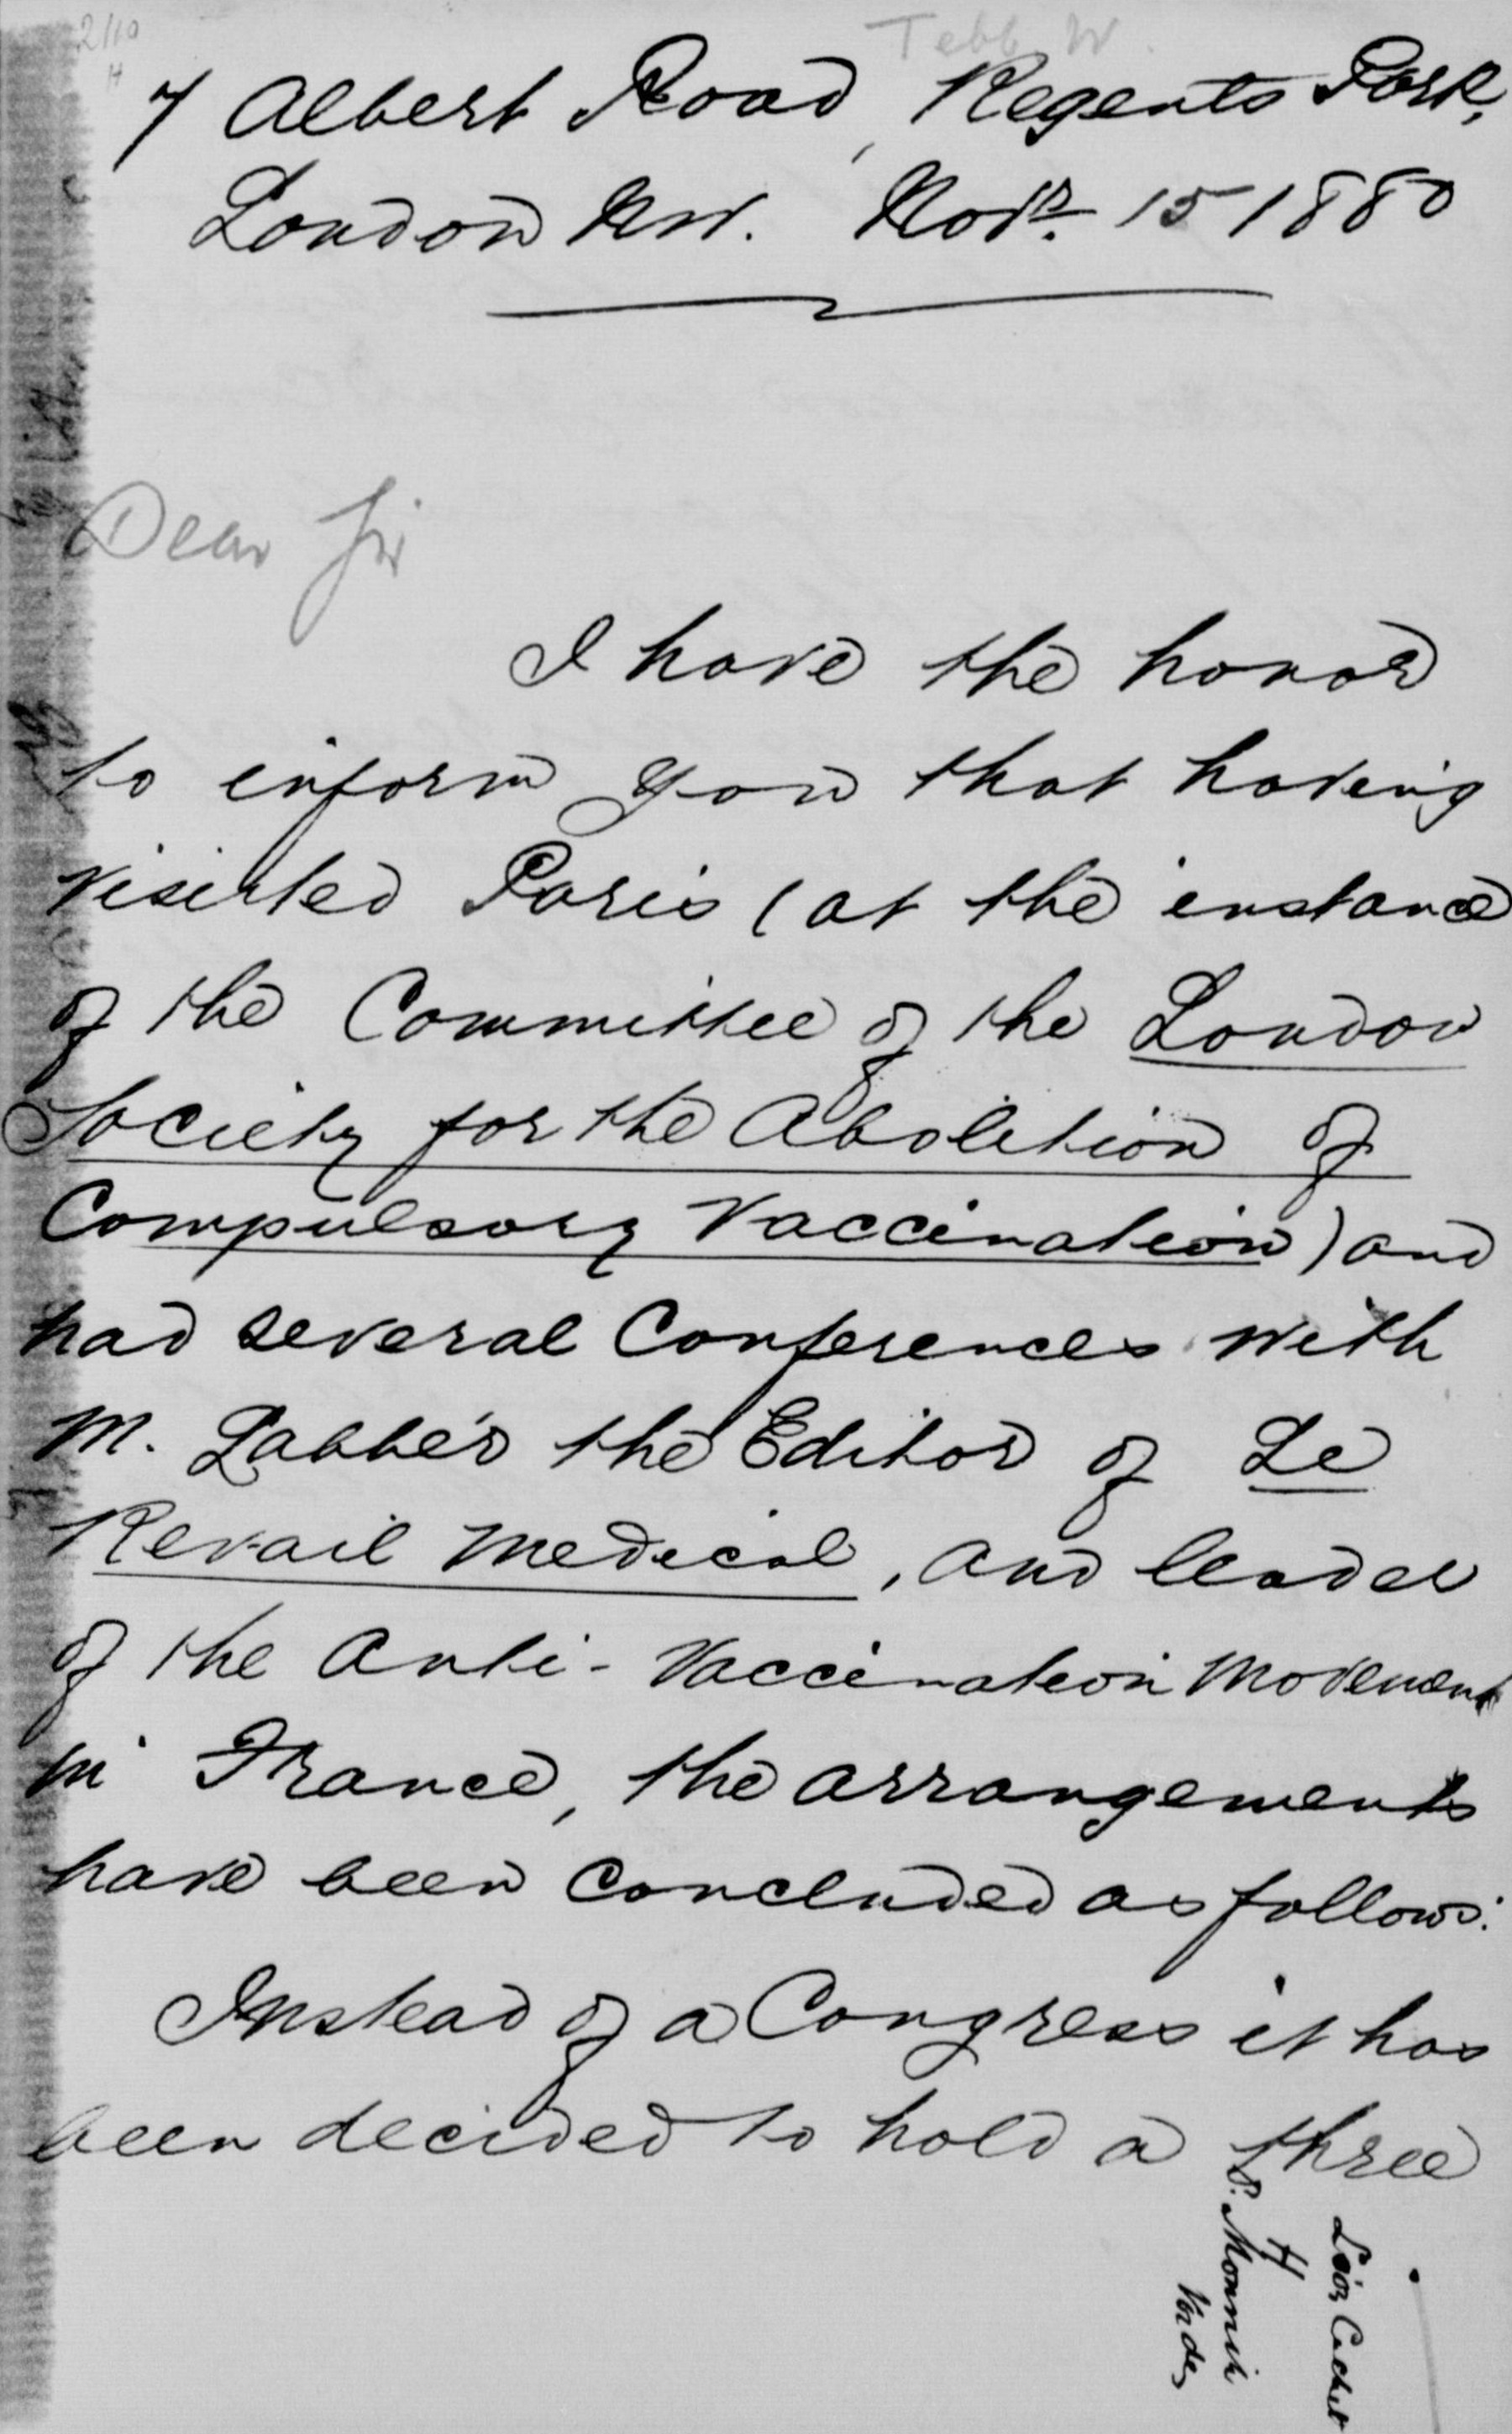 2/10
H
Tebb W.
7 Albert Road, Regents Park,
London NW. Novr. 15 1880
Dear Sir
I have the honor
to inform you that having
visited Paris (at the instance
of the Committee of the London
Society for the Abolition of
Compulsory Vaccination) and
had several Conferences with
M. Labbée the Editor of Le
Revail Medical, and leader
of the Anti-Vaccination Movement
in France, the arrangements
have been concluded as follows:
Instead of a Congress it has
been decided to hold a three
Lion Cachet
H
P. Monnik